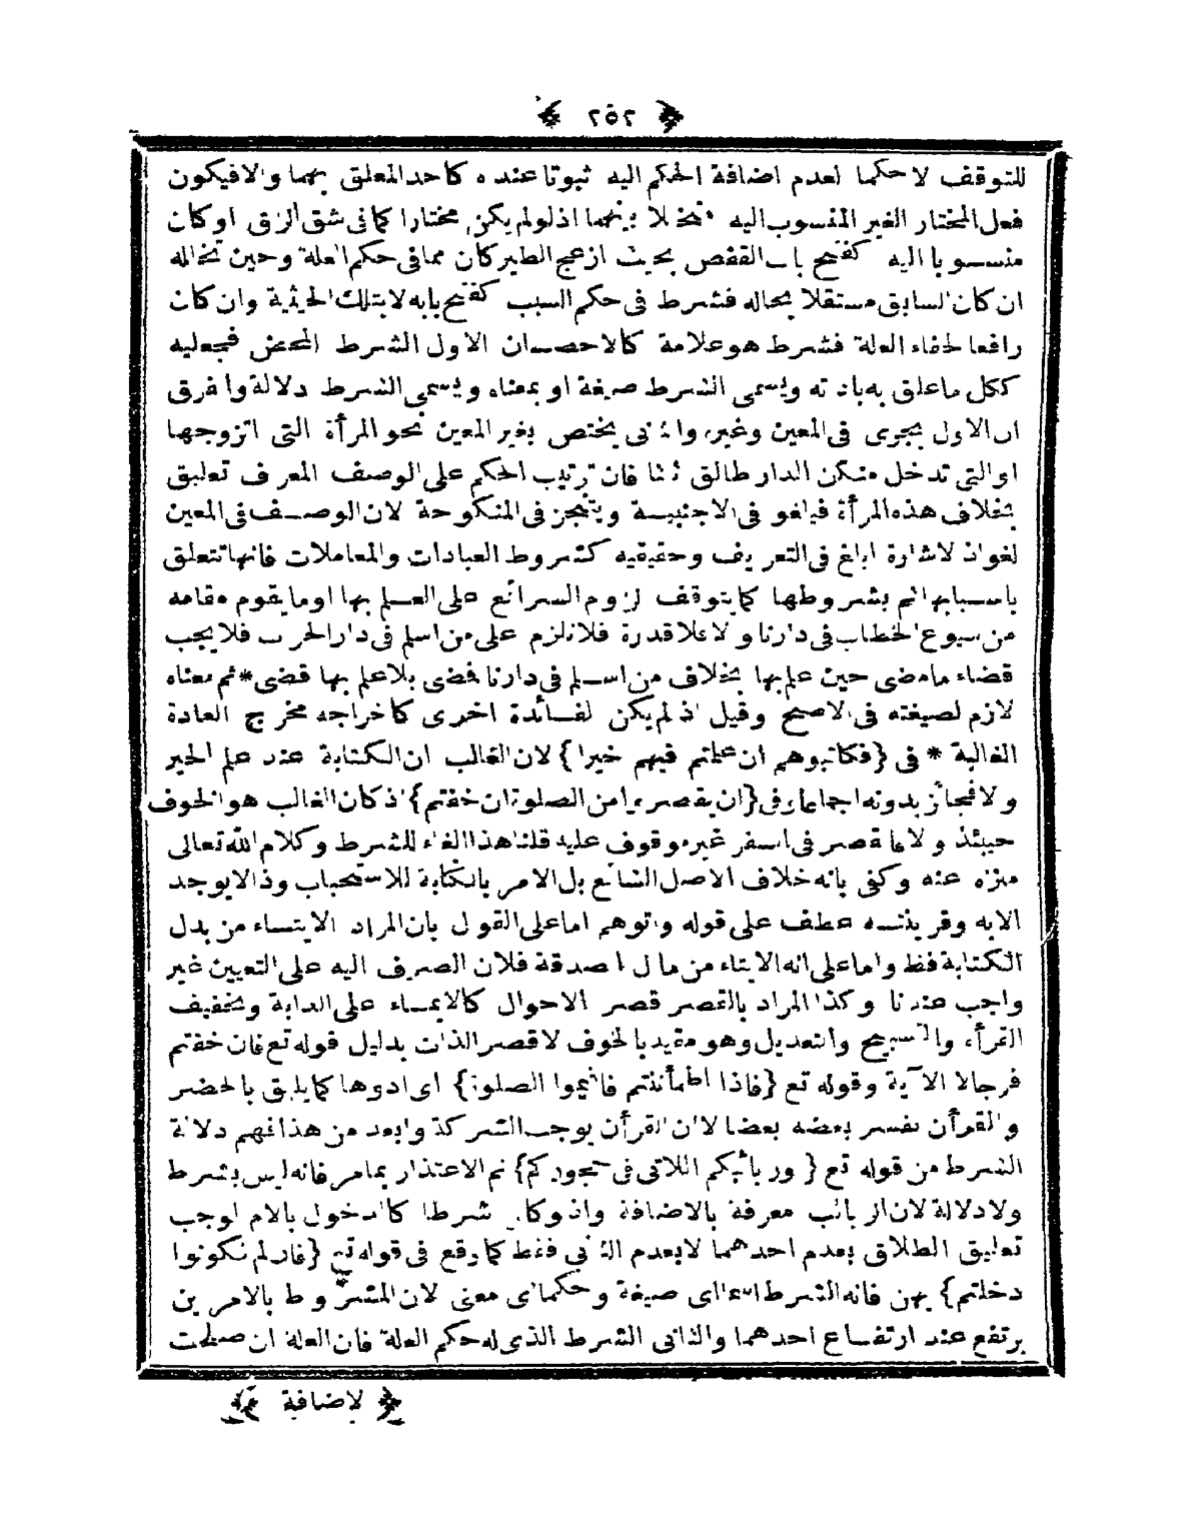 ﴿ ٢٥٢ ﴾
للتوقف لا حكما لعدم اضافة الحكم اليه ثبوتا عنده كاحد المعلق بهما والا فيكون
فعل المختار الغير المنسوب اليه متخللا بينهما اذ لو لم يكن مختارا كما فى شق الزق او كان
منسوبا اليه كفتح باب القفص بحيث ازعج الطير كان مما فى حكم العلة وحين تخلله
ان كان السابق مستقلا بحاله فشرط فى حكم السبب كفتح بابه لا بتلك الحيثية وان كان
رافعا لخفاء العلة فشرط هو علامة كالاحصان الاول الشرط المحض فجعليه
ككل ما علق به باداته ويسمى الشرط صيغة او بمعناه ويسمى الشرط دلالة والفرق
ان الاول يجرى فى المعين وغيره والثانى يختص بغير المعين نحو المرأة التى اتزوجها
او التى تدخل منكن الدار طالق ثلثا فان ترتيب الحكم على الوصف المعرف تعليق
بخلاف هذه المرأة فيلغو فى الاجنبية ويتنجز فى المنكوحة لان الوصف فى المعين
لغو اذ الاشارة ابلغ فى التعريف وحقيقيه كشروط العبادات والمعاملات فانها تتعلق
باسبابها ثم بشروطها كما يتوقف لزوم الشرائع على العلم بها او ما يقوم مقامه
من شيوع الخطاب فى دارنا ولا علا قدرة فلا تلزم على من اسلم فى دار الحرب فلا يجب
قضاء ما مضى حين علم بها بخلاف من اسلم فى دارنا فمضى بلا علم بها قضى * ثم معناه
لازم لصيغته فى الاصح وقيل اذ لم يكن لفائدة اخرى كاخراجه مخرج العادة
الغالبة * فى {فكاتبوهم ان علمتم فيهم خيرا} لان الغالب ان الكتابة عند علم الخير
ولا فجائز بدونه اجماعا وفى {ان يقصروا من الصلوة ان خفتم} اذ كان الغالب هو الخوف
حينئذ ولا فا قصر فى السفر غير موقوف عليه قلنا هذا الغاء للشرط وكلام الله تعالى
منزه عنه وكفى بانه خلاف الاصل الشائع بل الامر بالكتابة للاستحباب وذا لا يوجد
الا به وقرينته عطف على قوله وآتوهم اما على القول بان المراد الايتاء من بدل
الكتابة فقط واما على انه الايتاء من مال الصدقة فلان الصرف اليه على التعيين غير
واجب عندنا وكذا المراد بالقصر قصر الاحوال كالايماء على الدابة وتخفيف
القرأة والتسبيح والتعديل وهو مقيد بالخوف لا قصر الذات بدليل قوله تع فان خفتم
فرجالا الآية وقوله تع {فاذا اطمأننتم فاقيموا الصلوة} اى ادوها كما يليق بالحضر
والقرأن يفسر بعضه بعضا لا ان القرأن يوجب الشركة وابعد من هذا فهم دلالة
الشرط من قوله تع {وربائبكم اللاتى فى حجوركم} ثم الاعتذار بما مر فانه ليس بشرط
ولا دلالة لان الربائب معرفة بالاضافة واذ وكان شرطا كالدخول بالام لوجب
تعليق الطلاق بعدم احدهما لا بعدم الثانى فقط كما وقع فى قوله تع {فان لم تكونوا
دخلتم} بهن فانه الشرط اسما اى صيغة وحكما اى معنى لان المشروط بالامرين
يرتفع عند ارتفاع احدهما والثانى الشرط الذى له حكم العلة فان العلة ان صلحت
﴿ لاضافة ﴾